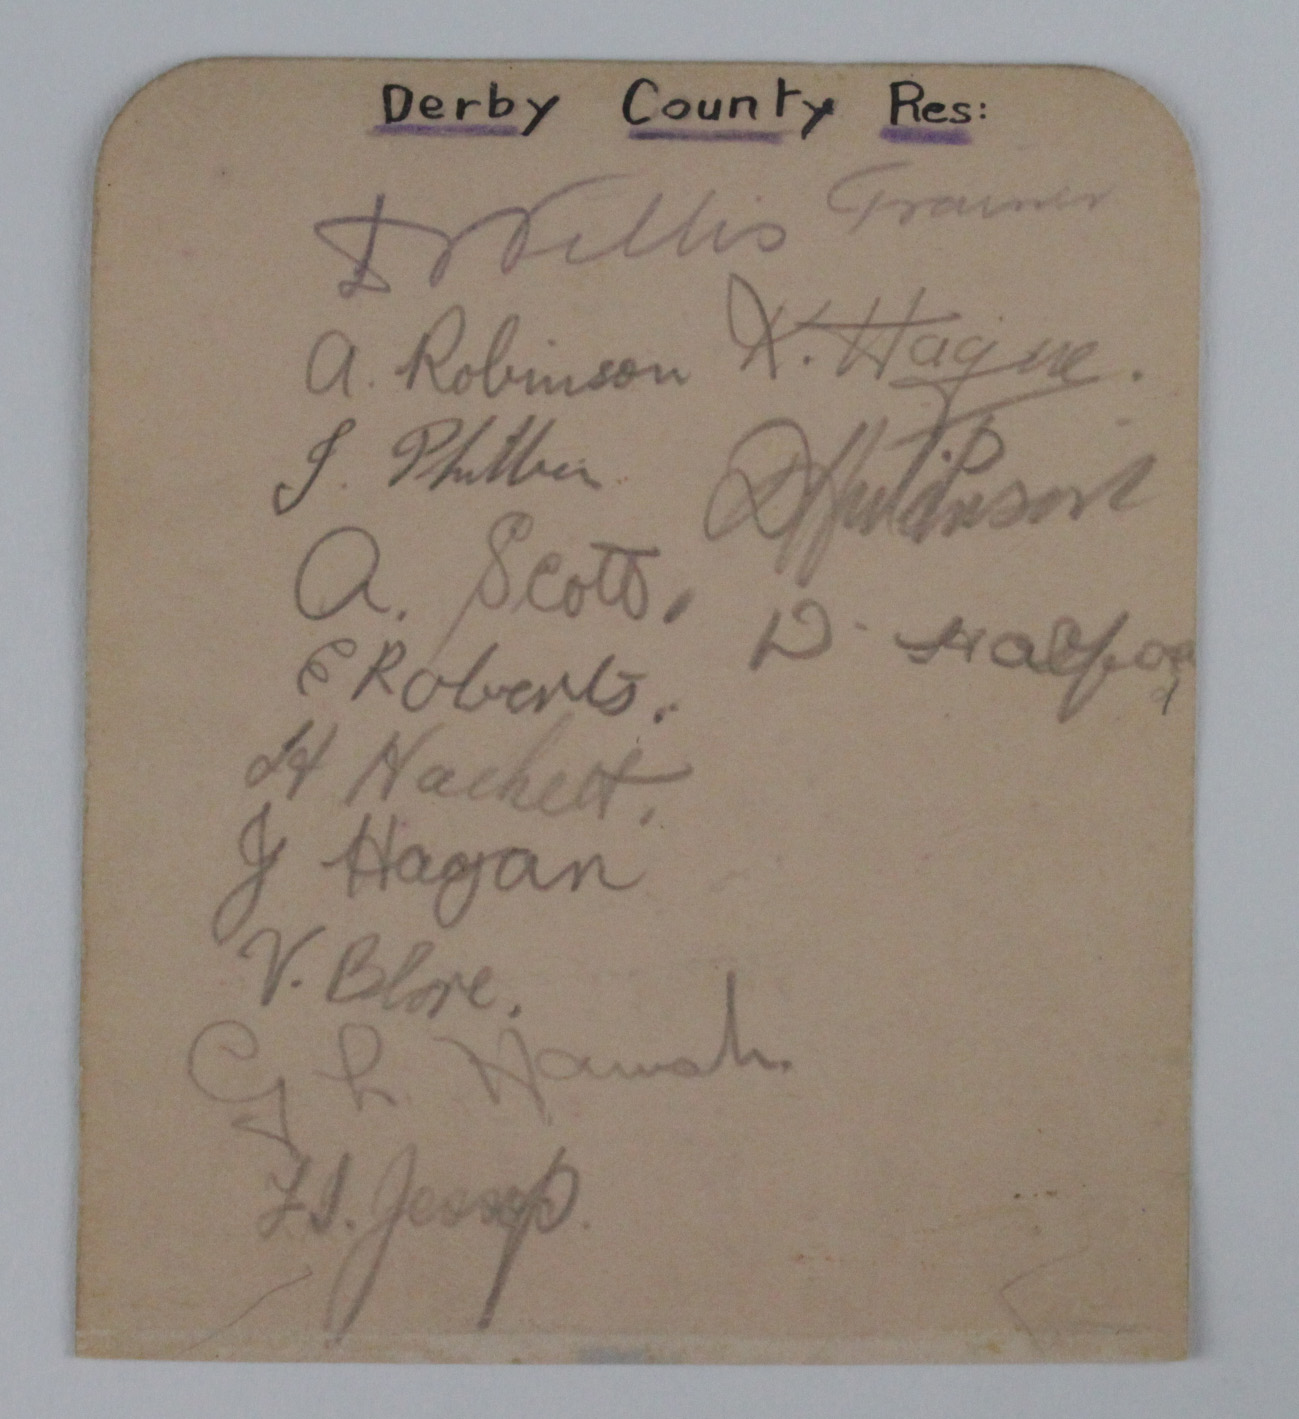 Derby County Res:
D Willis Trainer
A. Robinson K. Hague.
J. Philbin
D Hutchinson
A. Scott.
E Roberts. D.
H Hackett.
J Hagan
V. Blore.
G L
F S. Jessop.